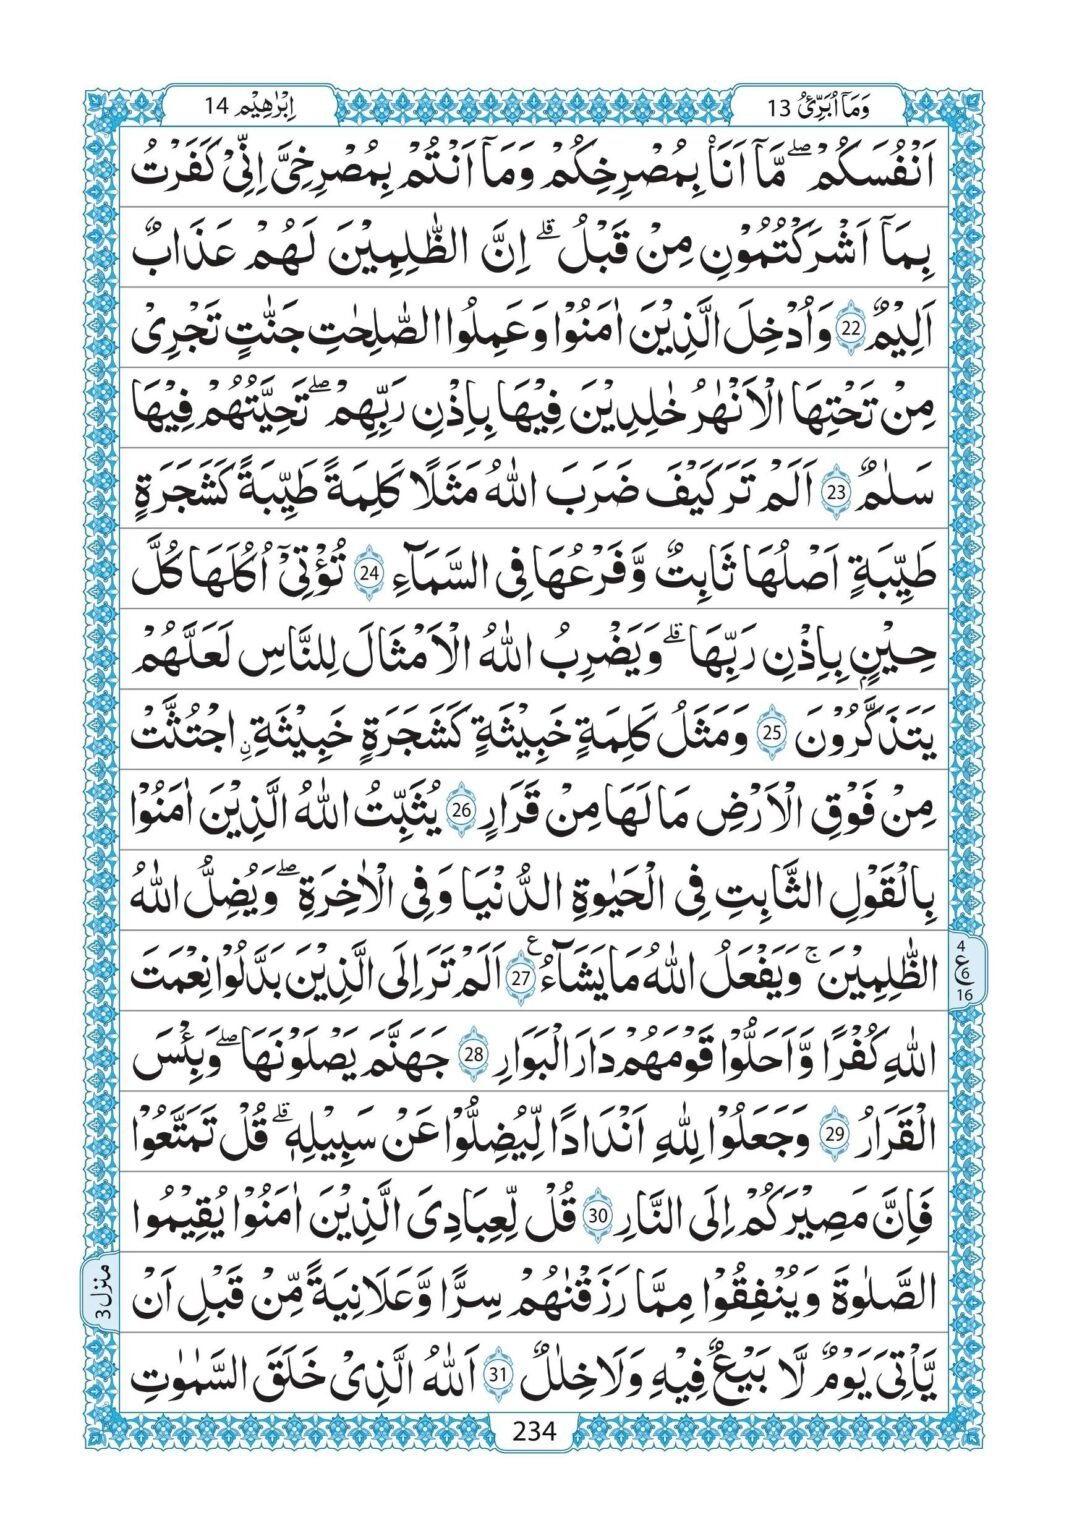 وَمَاۤ اُبَرِّئُ 13
اِبْرٰهِيْم 14
اَنْفُسَكُمْ ؕ مَاۤ اَنَا۠ بِمُصْرِخِكُمْ وَمَاۤ اَنْتُمْ بِمُصْرِخِيَّ اِنِّيْ كَفَرْتُ
بِمَاۤ اَشْرَكْتُمُوْنِ مِنْ قَبْلُ ۗ اِنَّ الظّٰلِمِيْنَ لَهُمْ عَذَابٌ
اَلِيْمٌ 22 وَاُدْخِلَ الَّذِيْنَ اٰمَنُوْا وَعَمِلُوا الصّٰلِحٰتِ جَنّٰتٍ تَجْرِيْ
مِنْ تَحْتِهَا الْاَنْهٰرُ خٰلِدِيْنَ فِيْهَا بِاِذْنِ رَبِّهِمْ ۖ تَحِيَّتُهُمْ فِيْهَا
سَلٰمٌ 23 اَلَمْ تَرَ كَيْفَ ضَرَبَ اللّٰهُ مَثَلًا كَلِمَةً طَيِّبَةً كَشَجَرَةٍ
طَيِّبَةٍ اَصْلُهَا ثَابِتٌ وَّفَرْعُهَا فِى السَّمَآءِ 24 تُؤْتِيْۤ اُكُلَهَا كُلَّ
حِيْنٍۭ بِاِذْنِ رَبِّهَا ۗ وَيَضْرِبُ اللّٰهُ الْاَمْثَالَ لِلنَّاسِ لَعَلَّهُمْ
يَتَذَكَّرُوْنَ 25 وَمَثَلُ كَلِمَةٍ خَبِيْثَةٍ كَشَجَرَةٍ خَبِيْثَةِ ۨ اجْتُثَّتْ
مِنْ فَوْقِ الْاَرْضِ مَا لَهَا مِنْ قَرَارٍ 26 يُثَبِّتُ اللّٰهُ الَّذِيْنَ اٰمَنُوْا
بِالْقَوْلِ الثَّابِتِ فِى الْحَيٰوةِ الدُّنْيَا وَفِى الْاٰخِرَةِ ۖ وَيُضِلُّ اللّٰهُ
الظّٰلِمِيْنَ ۚ وَيَفْعَلُ اللّٰهُ مَا يَشَآءُ 27 ع اَلَمْ تَرَ اِلَى الَّذِيْنَ بَدَّلُوْا نِعْمَتَ
4
ع 6
16
اللّٰهِ كُفْرًا وَّاَحَلُّوْا قَوْمَهُمْ دَارَ الْبَوَارِ 28 جَهَنَّمَ يَصْلَوْنَهَا ۖ وَبِئْسَ
الْقَرَارُ 29 وَجَعَلُوْا لِلّٰهِ اَنْدَادًا لِّيُضِلُّوْا عَنْ سَبِيْلِهٖ ۗ قُلْ تَمَتَّعُوْا
فَاِنَّ مَصِيْرَكُمْ اِلَى النَّارِ 30 قُلْ لِّعِبَادِىَ الَّذِيْنَ اٰمَنُوْا يُقِيْمُوا
الصَّلٰوةَ وَيُنْفِقُوْا مِمَّا رَزَقْنٰهُمْ سِرًّا وَّعَلَانِيَةً مِّنْ قَبْلِ اَنْ
منزل 3
يَّاْتِيَ يَوْمٌ لَّا بَيْعٌ فِيْهِ وَلَا خِلٰلٌ 31 اَللّٰهُ الَّذِيْ خَلَقَ السَّمٰوٰتِ
234